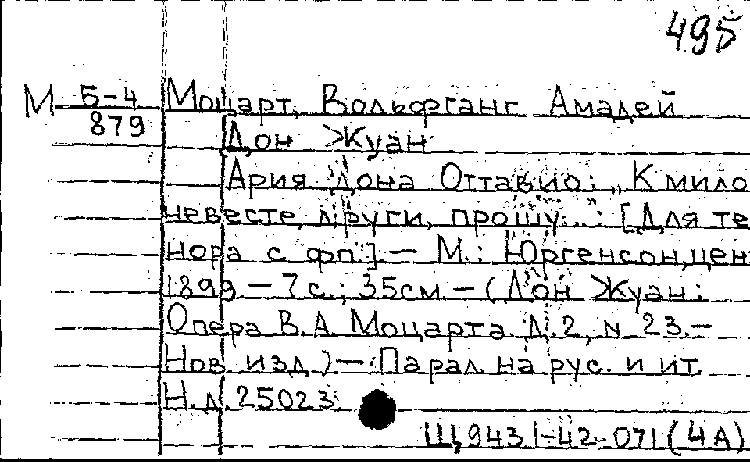 495
М Б-4 Моцарт, Вольфганг Амадей
879 Дон Жуан
Ария Дона Оттавио: „К мило
невесте, други, прошу...": [Для те
нора с фп.] — М.: Юргенсон, цен
1899 — 7 с.; 35 см — (Дон Жуан:
Опера В. А. Моцарта Д. 2, № 23. —
Нов. изд.) — Парал. на рус. и ит.
Н. д. 25023
Щ943.1-42-071 (4А)